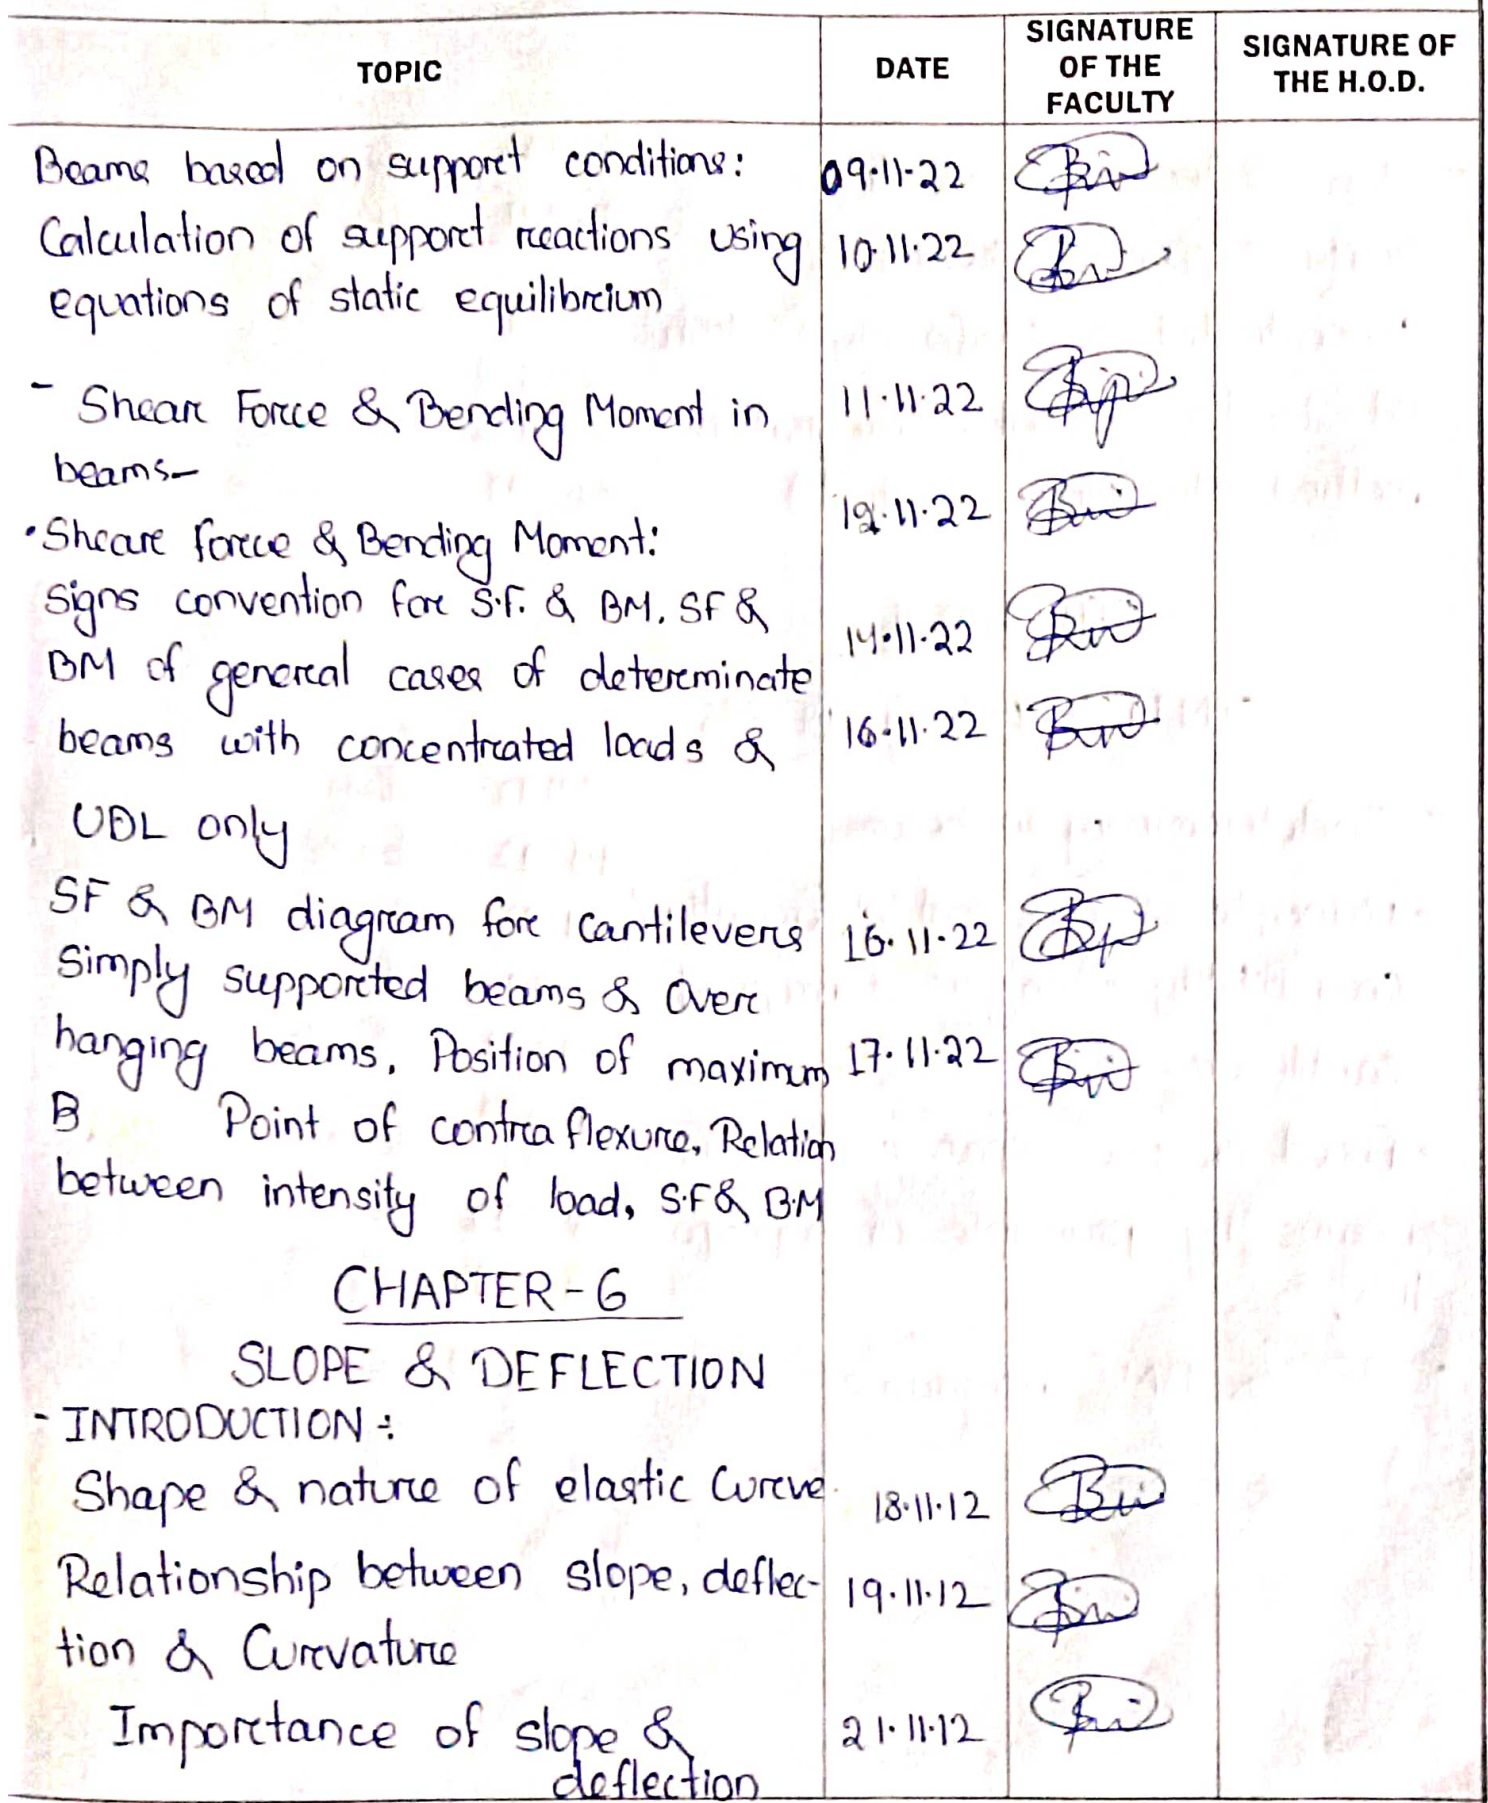 TOPIC DATE SIGNATURE OF THE FACULTY SIGNATURE OF THE H.O.D.
Beams based on support conditions: 09.11.22
Calculation of support reactions using 10.11.22
equations of static equilibrium
- Shear Force & Bending Moment in 11.11.22
beams-
12.11.22
• Shear force & Bending Moment:
Signs convention for S.F. & BM. SF &
BM of general cases of determinate 14.11.22
beams with concentrated loads & 16.11.22
UDL only
SF & BM diagram for Cantilevers 16.11.22
Simply supported beams & Over
hanging beams, Position of maximum 17.11.22
B Point of contra flexure, Relation
between intensity of load, S.F & B.M
CHAPTER-6
SLOPE & DEFLECTION
- INTRODUCTION :
Shape & nature of elastic Curve 18.11.12
Relationship between slope, deflec- 19.11.12
tion & Curvature
Importance of slope & 21.11.12
deflection